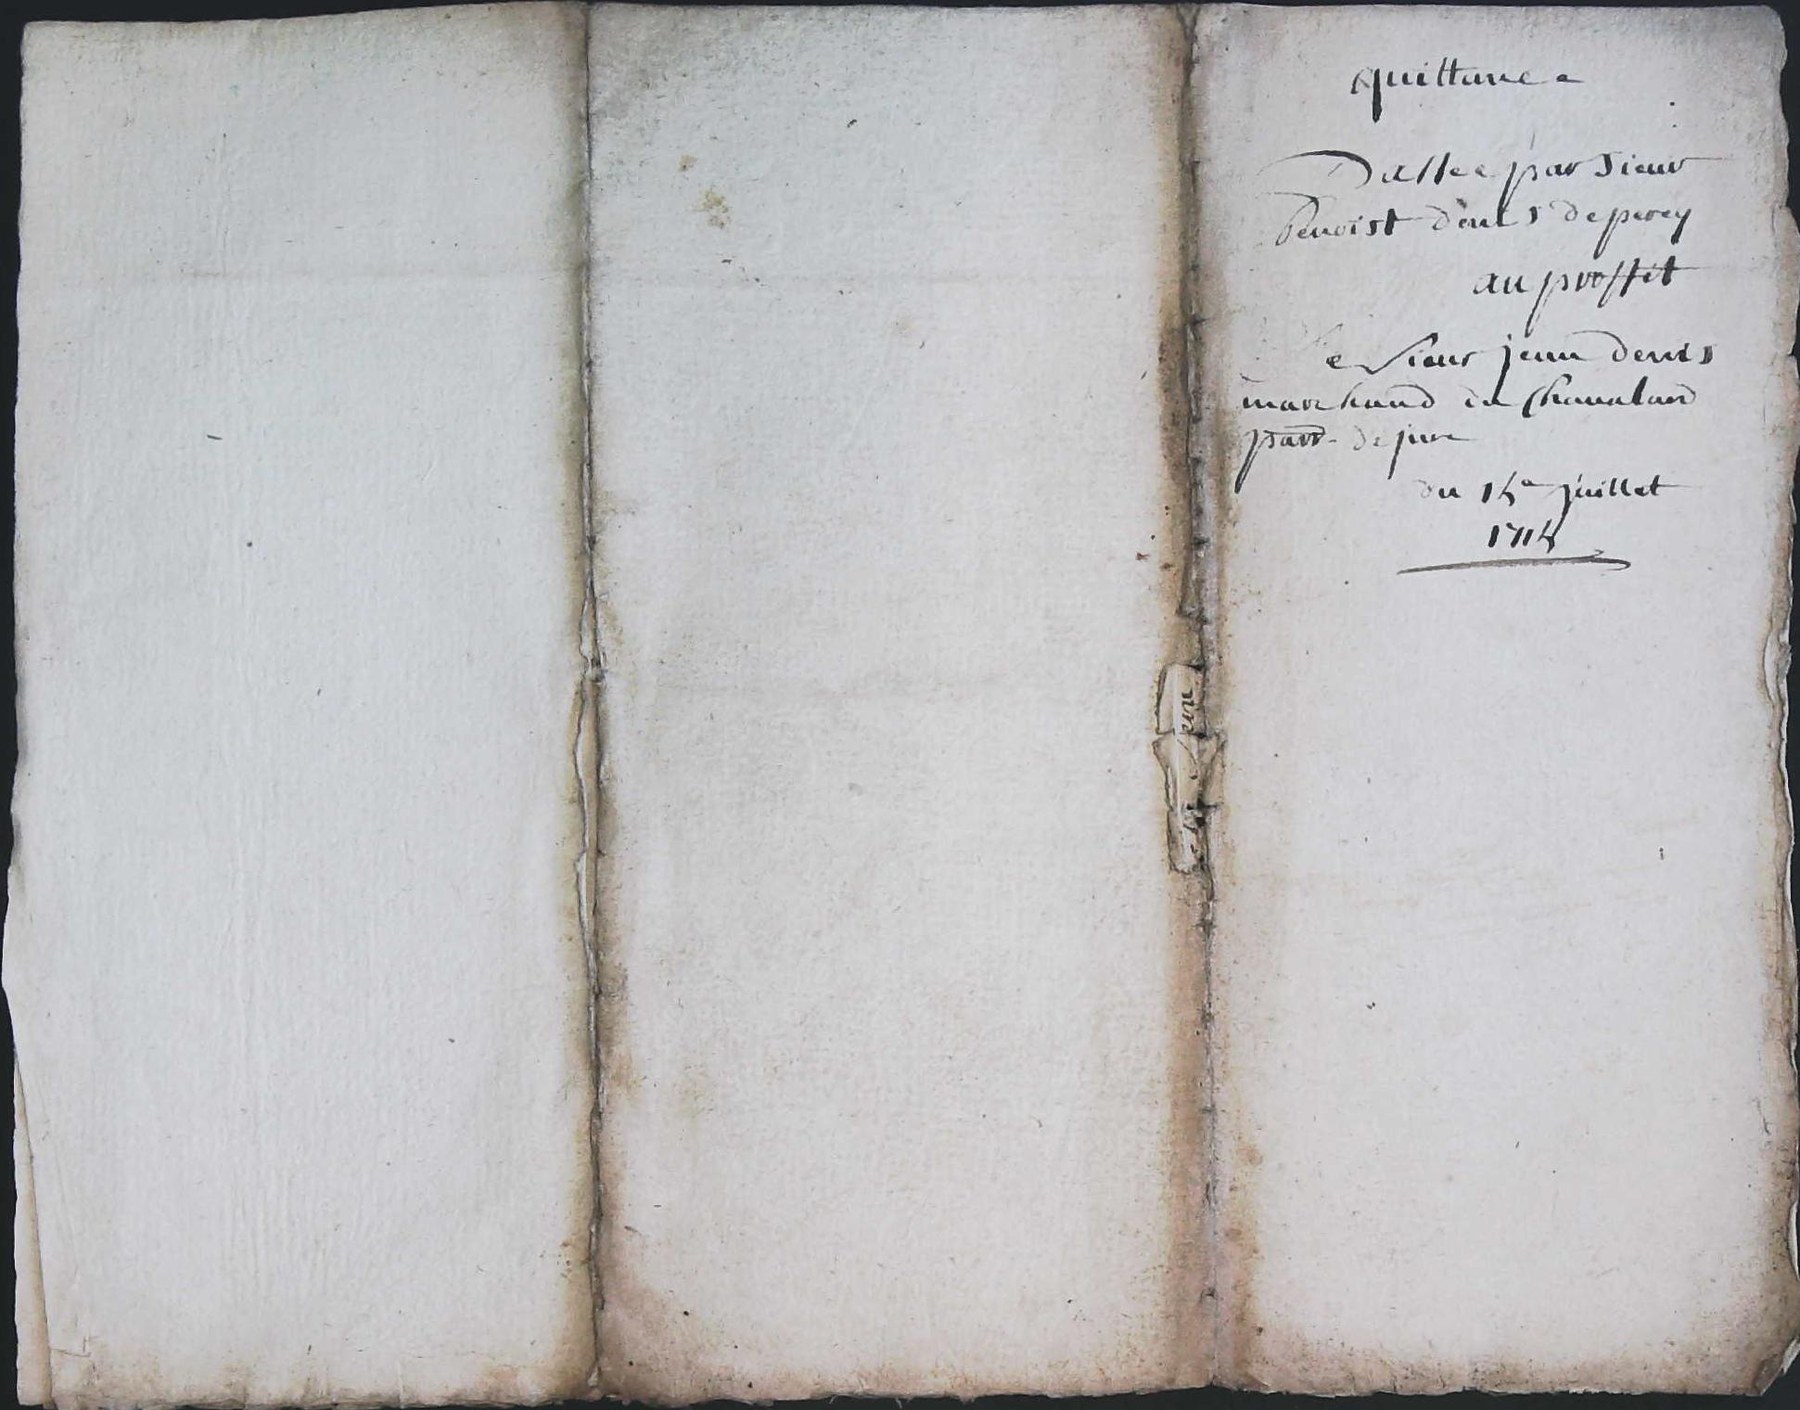 quittance
Passee par Sieur
Benoist denis de percy
au proffit
e sieur jean denis
marchand du Chanalard
parr. de jure
du 14e juillet
1714